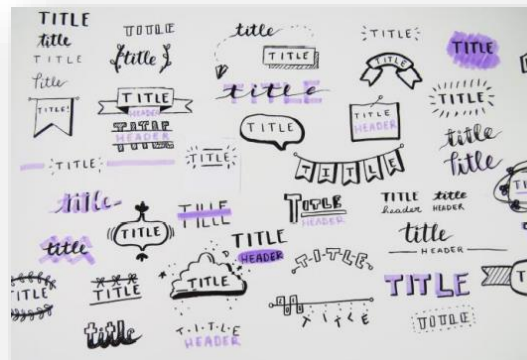 TITLE
title
TITLE
title
TITLE!
TITLE
title
TITLE
HEADER
TITLE
HEADER
TITLE
title
TITLE
title
TITLE
TITLE
title
TITLE
TITLE
TITLE
TITLE
HEADER
TITLE
TITLE
TITLE
HEADER
TITLE
TITLE
title
title
TITLE
HEADER
TITLE
header
title
HEADER
title
HEADER
TITLE
HEADER
T·I·T·L·E
TITLE
TITLE
TITLE
TITLE
TITLE
TITLE
title
T·I·T·L·E
HEADER
TITLE